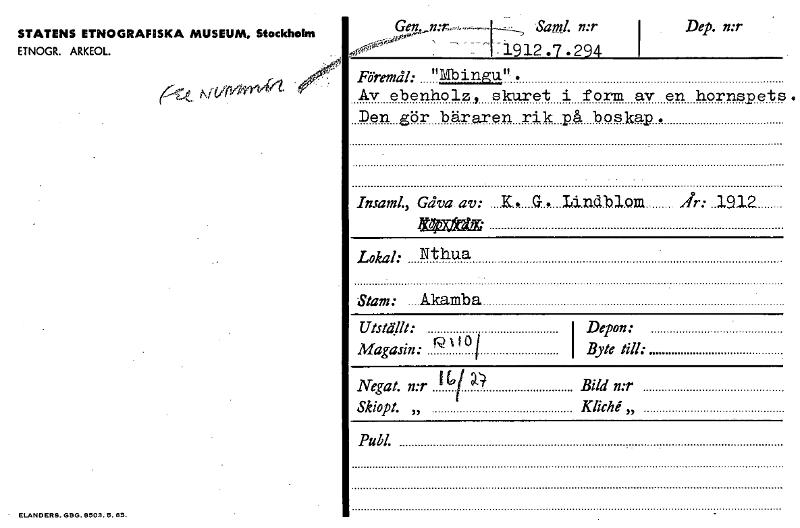 STATENS ETNOGRAFISKA MUSEUM, Stockholm
ETNOGR. ARKEOL.
Fel nummer
Gen. n:r Saml. n:r Dep. n:r
1912.7.294
Föremål: "Mbingu".
Av ebenholz, skuret i form av en hornspets.
Den gör bäraren rik på boskap.
Insaml., Gåva av: K. G. Lindblom År: 1912
Lokal: Nthua
Stam: Akamba
Utställt: Depon:
Magasin: R110/ Byte till:
Negat. n:r 16/27 Bild n:r
Skiopt. „ Kliché „
Publ.
ELANDERS, GBG. 8503. 5. 65.